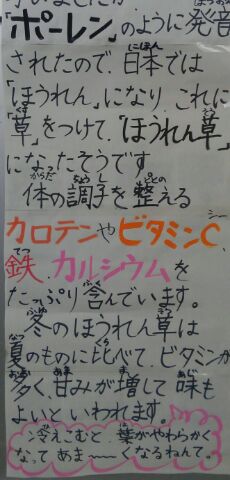 「ポーレン」のように発音
されたので、日本では
「ほうれん」になり、これに
「草」をつけて、「ほうれん草」
になったそうです
体の調子を整える
カロテンやビタミンC、
鉄、カルシウムを
たっぷり含んでいます。
冬のほうれん草は
夏のものに比べて、ビタミンが
多く、甘みが増して味も
よいといわれます。
冷えこむと、葉がやわらかく
なってあま〜〜くなるねんて。